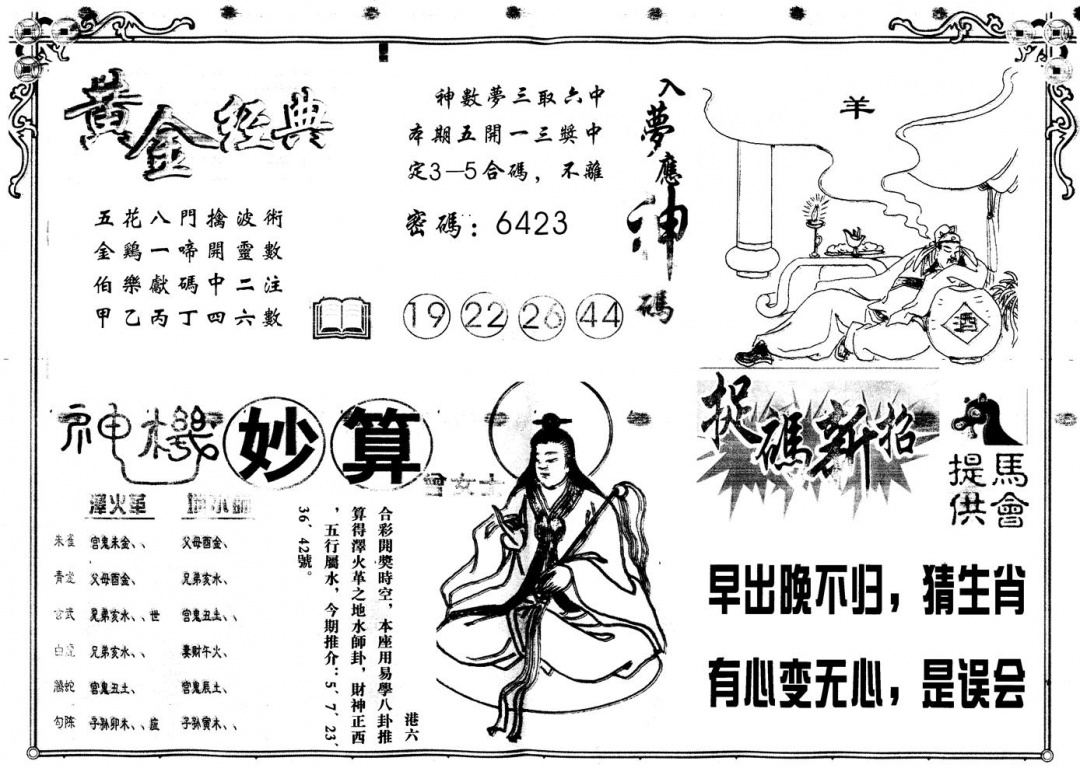 黃金經典
五花八門擒波術
金鷄一啼開靈數
伯樂獻碼中二注
甲乙丙丁四六數
神數夢三取六中
本期五開一三獎中
定3—5合碼，不離
密碼：6423
19 22 26 44
入夢應神碼
羊
酒
神機妙算
曾女士
澤火革
朱雀 官鬼未金、、 父母酉金、
青龙 父母酉金、 兄弟亥水、
玄武 兄弟亥水、、世 官鬼丑土、、
白虎 兄弟亥水、、 妻財午火、
螣蛇 官鬼丑土、 官鬼辰土、
勾陈 子孙卯木、、应 子孙寅木、、
港六
合彩開獎時空，本座用易學八卦推
算得澤火革之地水師卦，財神正西
，五行屬水，今期推介：5、7、23、
36、42號。
捉碼新招
馬會
提供
早出晚不归，猜生肖
有心变无心，是误会